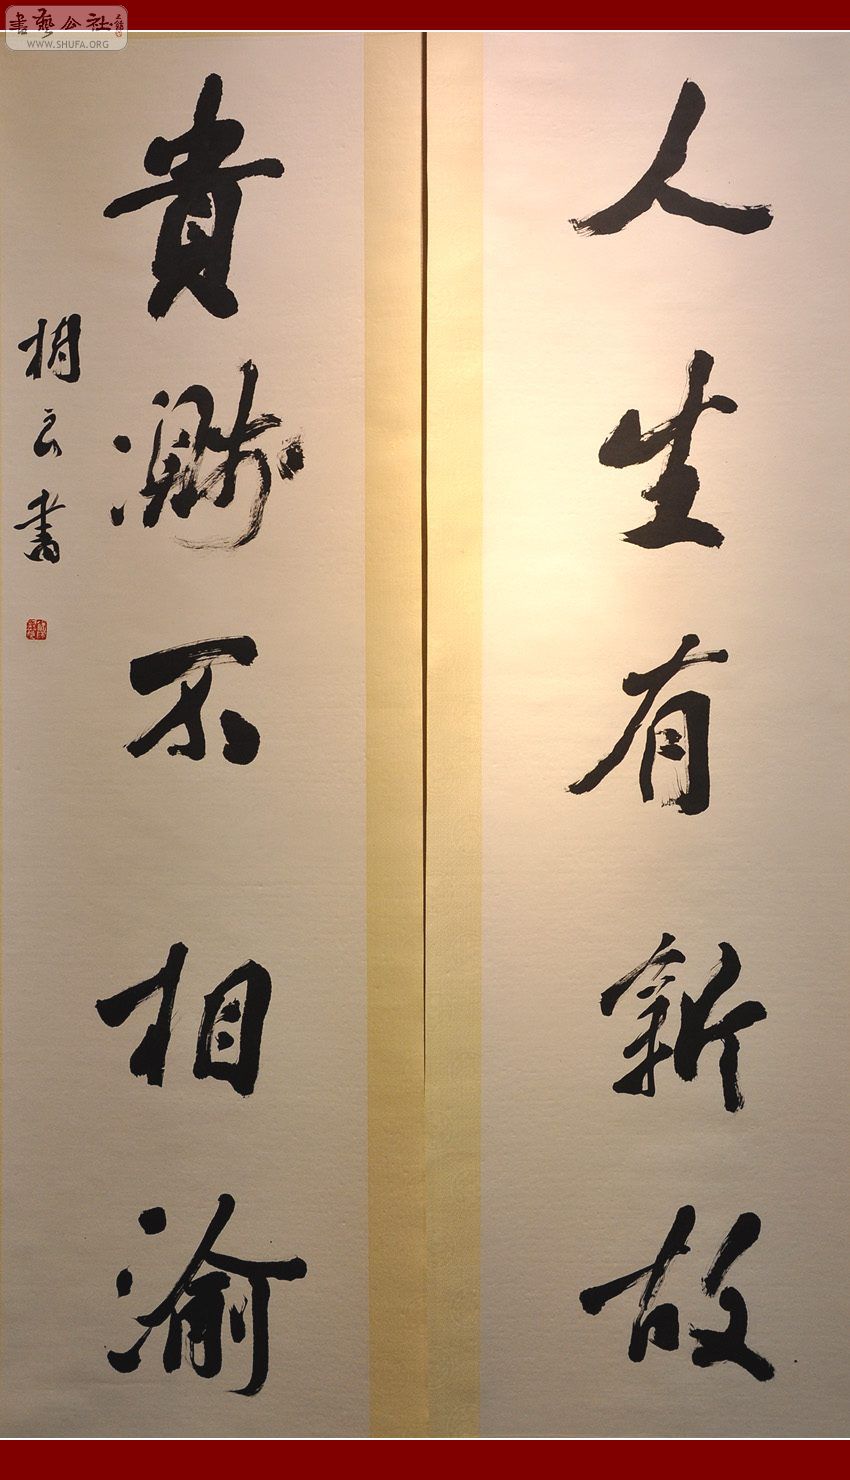 書藝公社
WWW.SHUFA.ORG
人生有新故
貴濺不相渝
云書